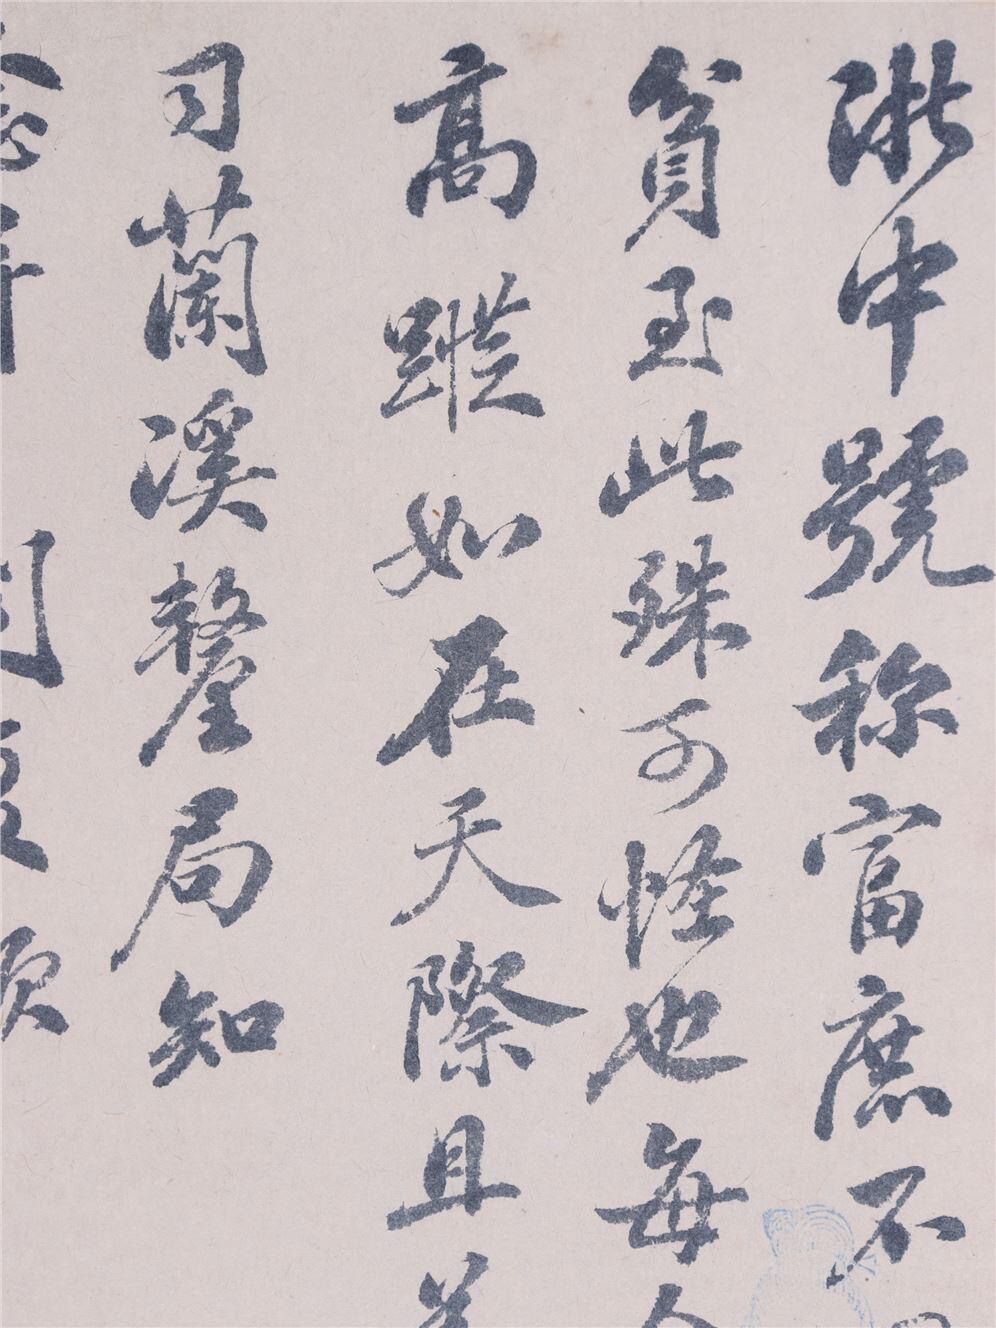 浙中號称富庶不
貧至此殊可怪也每
高蹤如在天際且
司蘭溪釐局知